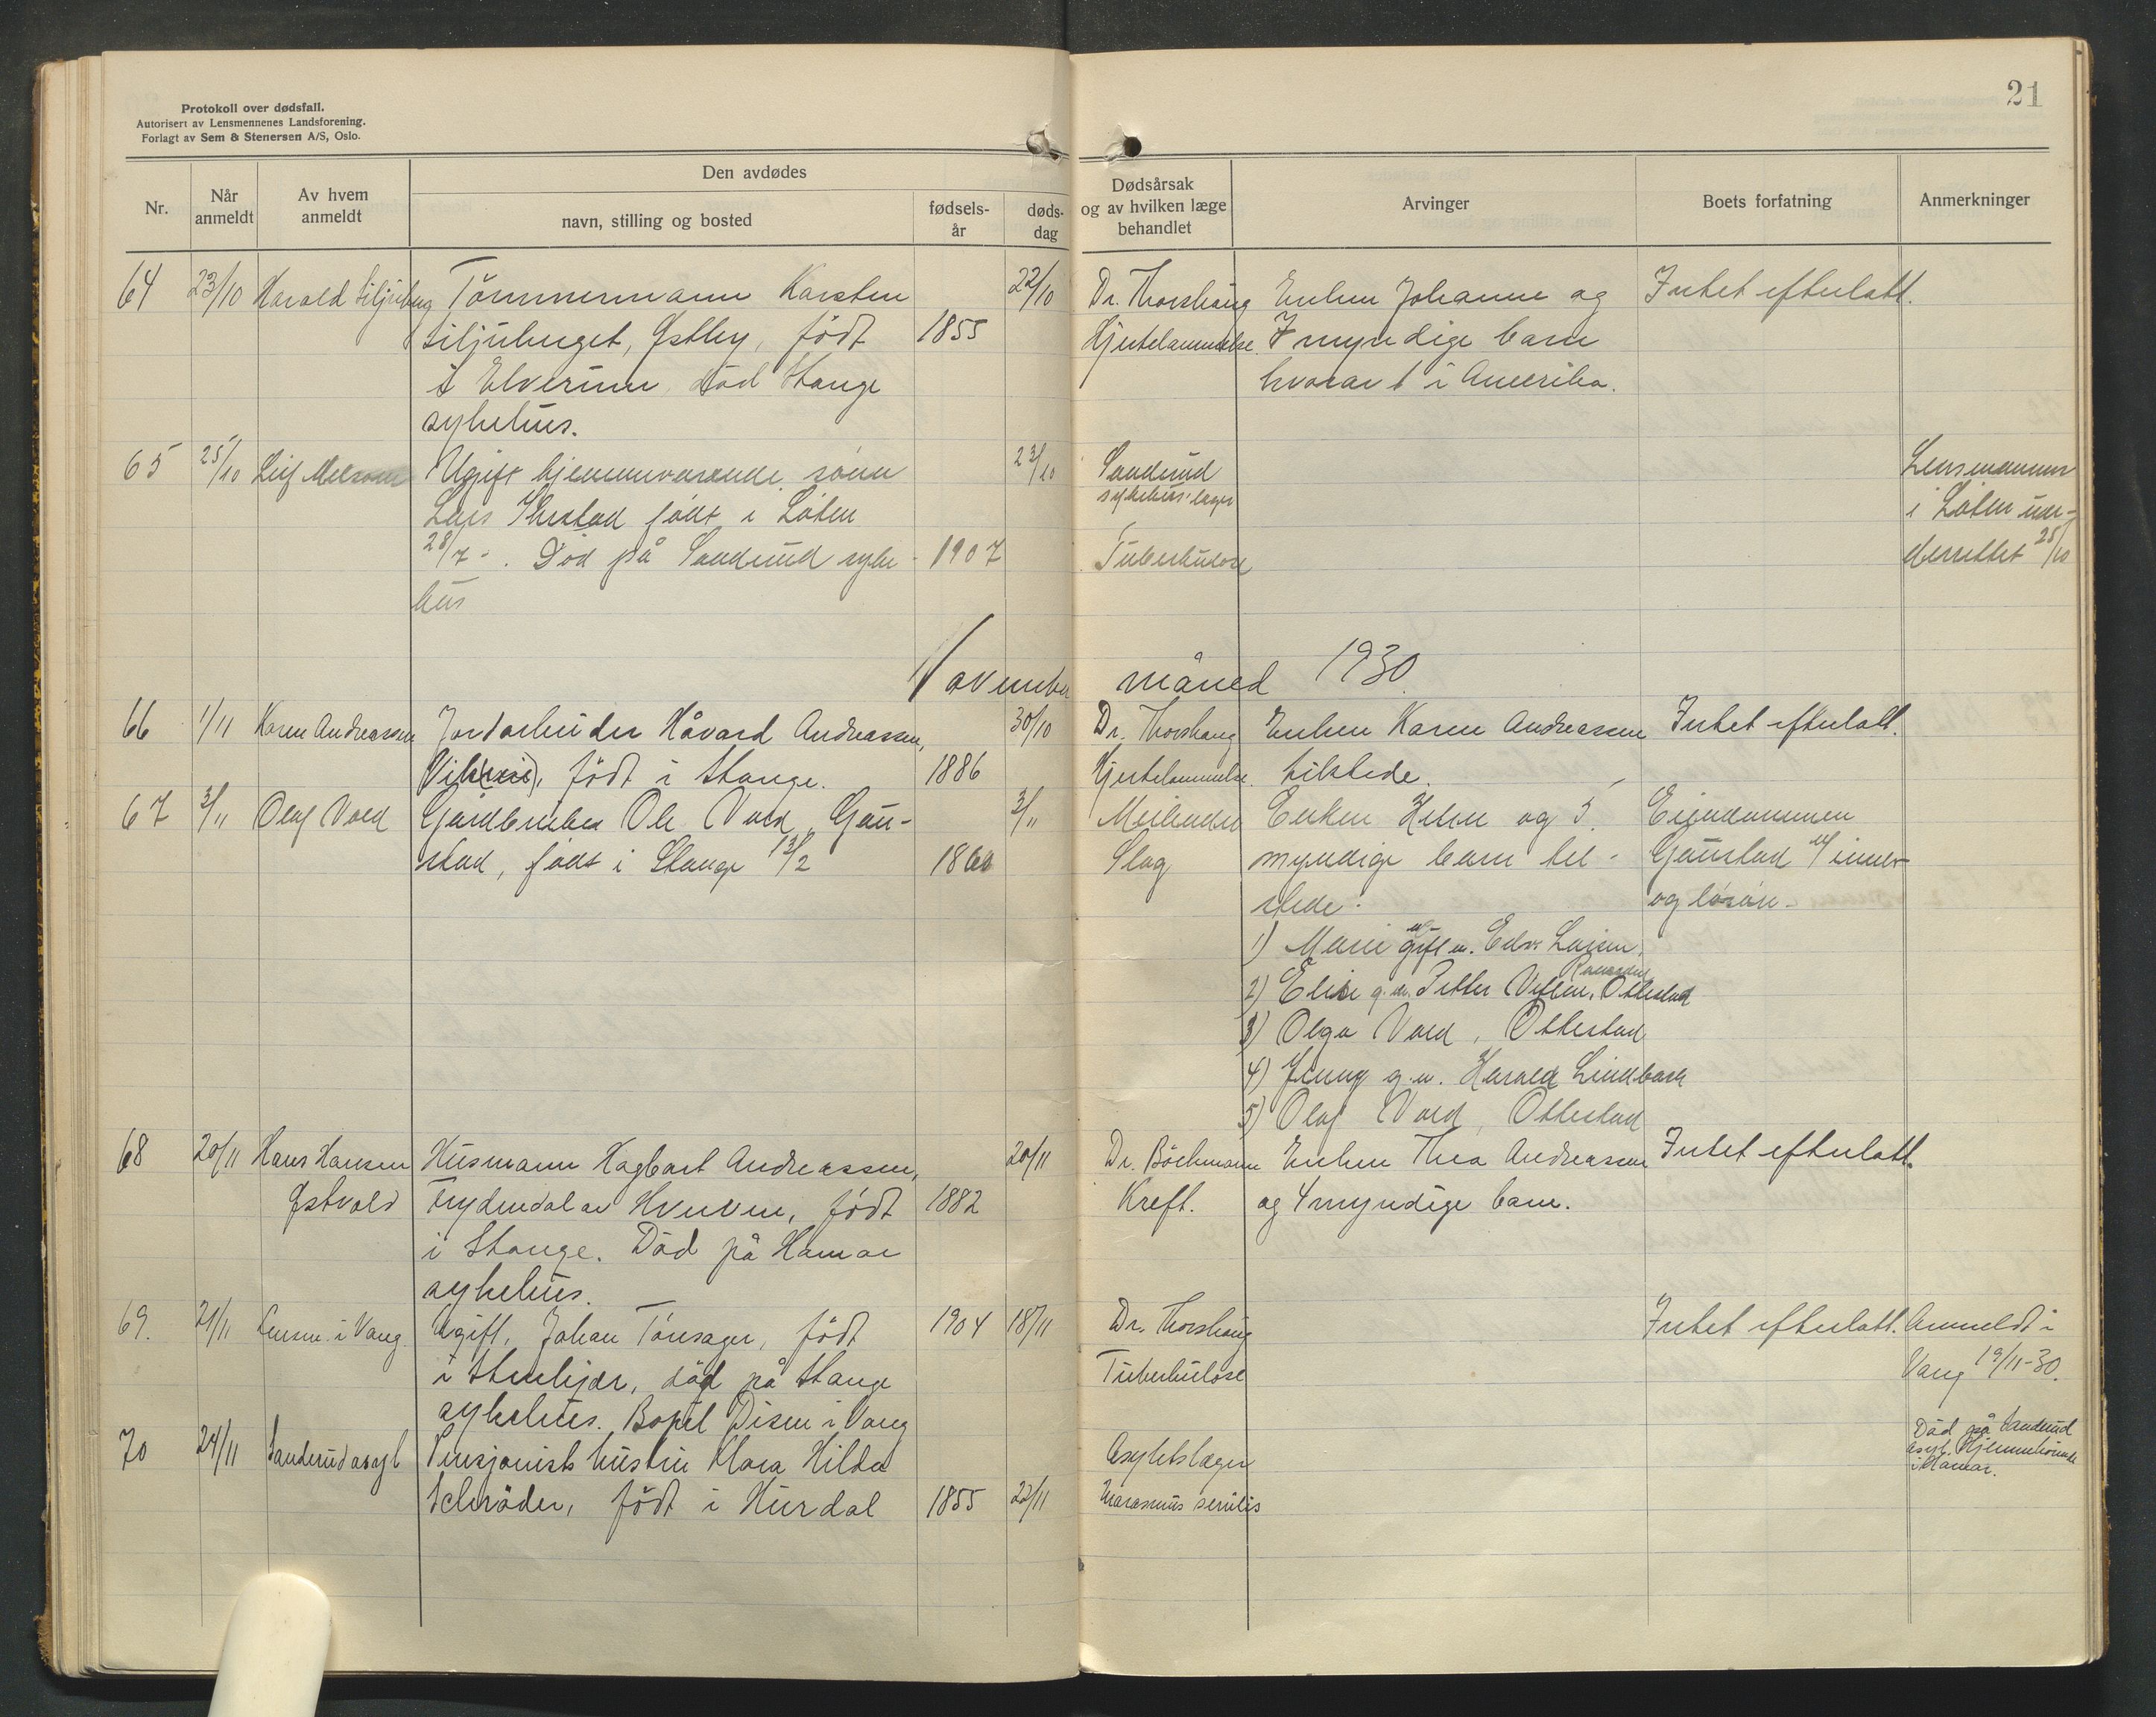 Protokoll over dødsfall.
Autorisert av Lensmennenes Landsforening.
Forlagt av Sem & Stenersen A/S, Oslo.
21
Nr.
Når anmeldt
Av hvem anmeldt
Den avdødes
navn, stilling og bosted
fødselsår
dødsdag
Dødsårsak og av hvilken læge behandlet
Arvinger
Boets forfatning
Anmerkninger
64 23/10 Harald Tømmermann Karsten 22/10 Dr. Thorshaug Enken Johanne og Intet efterlatt.
Østby, født 1855 Hjertelammelse. 7 myndige barn
i Elverum, død Stange hvorav 1 i Amerika.
sykehus.
65 25/10 Leif Ugift hjemmeværende sønn 23/10 Sanderud Lensmannen
Lars født i Løten sykehus læger i Løten un-
28/7 - . Død på Sanderud syke- 1907 Tuberkulose derrettet 25/10
hus
November måned 1930.
66 1/11 Karen Andreassen Jordarbeider Håvard Andreassen, 30/10 Dr. Thorshaug Enken Karen Andreassen Intet efterlatt.
født i Stange. 1886 Hjertelammelse. tilstede.
67 3/11 Olaf Vold Gårdbruker Ole Vold, Gau- 3/11 Enken Helene og 5 Eiendommen
stad, født i Stange 13/2 1860 Slag myndige barn til- Gaustad m/ innbo
stede: og løsøre.
1) Marie gift m. Edv. Larsen.
2) Elise g.m. Petter Ottestad
3) Olga Vold, Ottestad
4) Jenny g.m. Harald Lindback
5) Olaf Vold, Ottestad
68 20/11 Hans Hansen Husmann Hagbart Andreassen, 20/11 Dr. Böckmann Enken Thea Andreassen Intet efterlatt.
Østvold Frydendal av Hverven, født 1882 Kreft. og 4 myndige barn.
i Stange. Død på Hamar
sykehus.
69. 21/11 Lensm. i Vang. Ugift, Johan Tønsager, født 1904 18/11 Dr. Thorshaug Intet efterlatt. Anmeldt i
i Stenkjær, død på Stange Tuberkulose Vang 19/11-30.
sykehus. Bopel Disen i Vang
70 24/11 Sanderud asyl Pensjonists hustru Klara Hilda Asylets læger Død på Sanderud
asyl. Hjemmehørende
i Hamar.
Schrøder, født i Hurdal 1855 22/11 Marasmus senilis